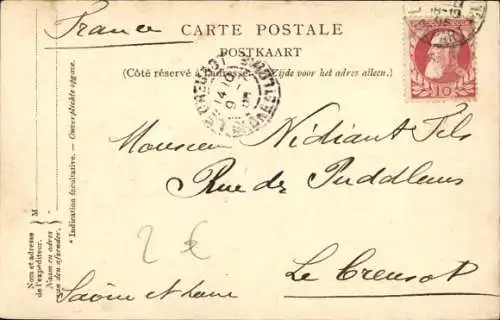 France
CARTE POSTALE
POSTKAART
(Côté réservé à l'adresse.) Zijde voor het adres alleen.)
10
Monsieur Nidiant Fils
Rue des Puddleurs
Le Creusot
Saône et Loire
2 €
* Indication facultative. — Onverplichte opgave.
M
Nom et adresse de l'expéditeur.
Naam en adres van den afzender.